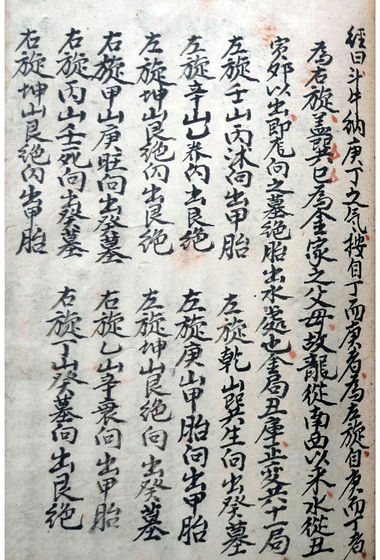 經曰斗牛納庚丁之氣按自丁而庚者為左旋自庚而丁者
為右旋蓋巽巳為金家之父母故龍從南西以來水從丑
寅郊以出即向之墓絕胎出水處也金局丑庫正变共十一局
左旋壬山丙沐向出甲胎
左旋乾山巽生向出癸墓
左旋辛山乙养向出艮絕
左旋庚山甲胎向出甲胎
左旋坤山艮絕向出艮絕
左旋坤山艮絕向出癸墓
右旋甲山庚旺向出癸墓
右旋乙山辛衰向出甲胎
右旋丙山壬死向出癸墓
右旋丁山癸墓向出艮絕
右旋坤山艮絕向出甲胎